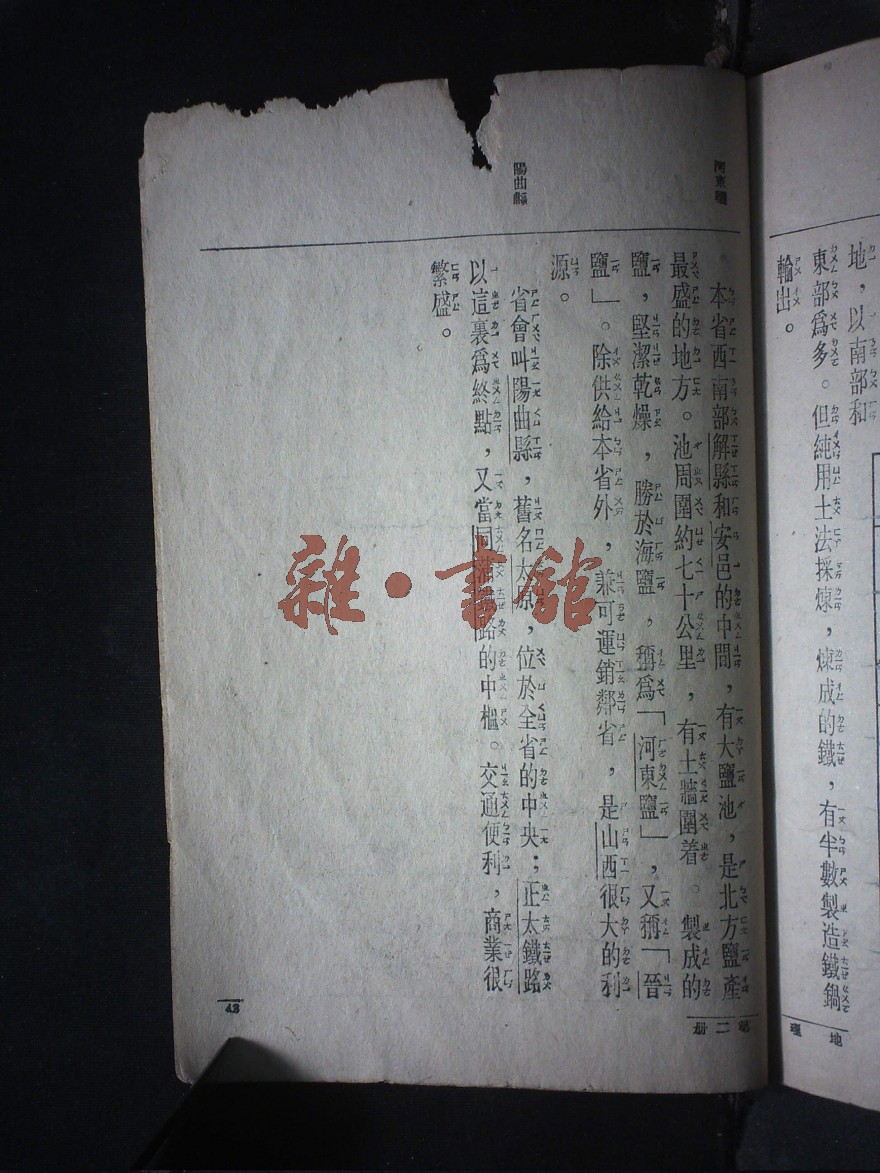 地，以南部和
東部為多。但純用土法採煉，煉成的鐵，有半數製造鐵鍋
輸出。
地理
河東鹽
本省西南部解縣和安邑的中間，有大鹽池，是北方鹽產
最盛的地方。池周圍約七十公里，有土牆圍着。製成的
鹽，堅潔乾燥，勝於海鹽，稱為「河東鹽」，又稱「晉
鹽」。除供給本省外，兼可運銷鄰省，是山西很大的利
源。
陽曲縣
省會叫陽曲縣，舊名太原，位於全省的中央；正太鐵路
以這裏為終點，又當同蒲鐵路的中樞。交通便利，商業很
繁盛。
第二册
43
雜·書館